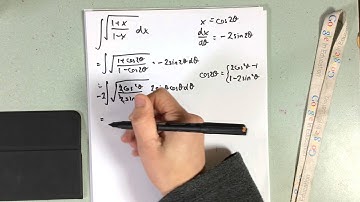 ∫√((1+x)/(1-x)) dx
x = cos2θ
dx/dθ = -2sin2θ
= ∫√((1+cos2θ)/(1-cos2θ)) · -2sin2θ dθ
cos2θ = {2cos²θ-1
{1-2sin²θ
= -2∫√(2cos²θ/2sin 2sinθcosθdθ
=